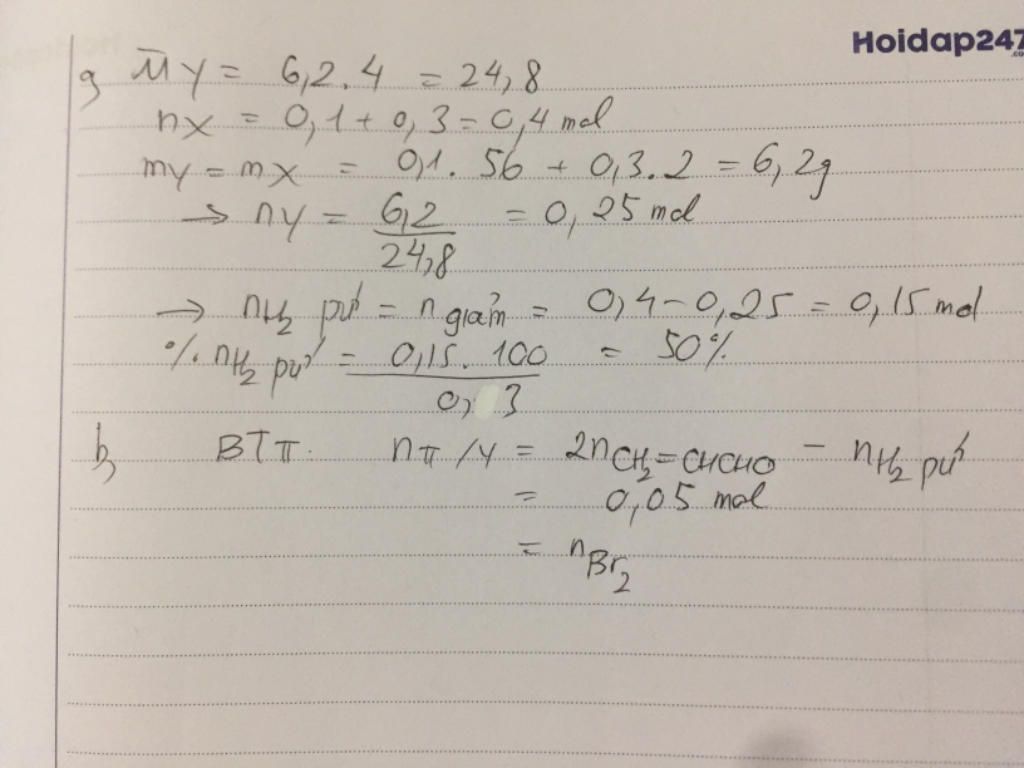 Hoidap247.com
a, M̅Y = 6,2.4 = 24,8
nX = 0,1 + 0,3 = 0,4 mol
mY = mX = 0,1. 56 + 0,3.2 = 6,2g
→ nY = 6,2 / 24,8 = 0,25 mol
→ nH₂ pứ = n giảm = 0,4 - 0,25 = 0,15 mol
% nH₂ pứ = 0,15. 100 / 0, 3 = 50%
b, BTπ. nπ/Y = 2nCH₂=CHCHO - nH₂ pứ
= 0,05 mol
= nBr₂